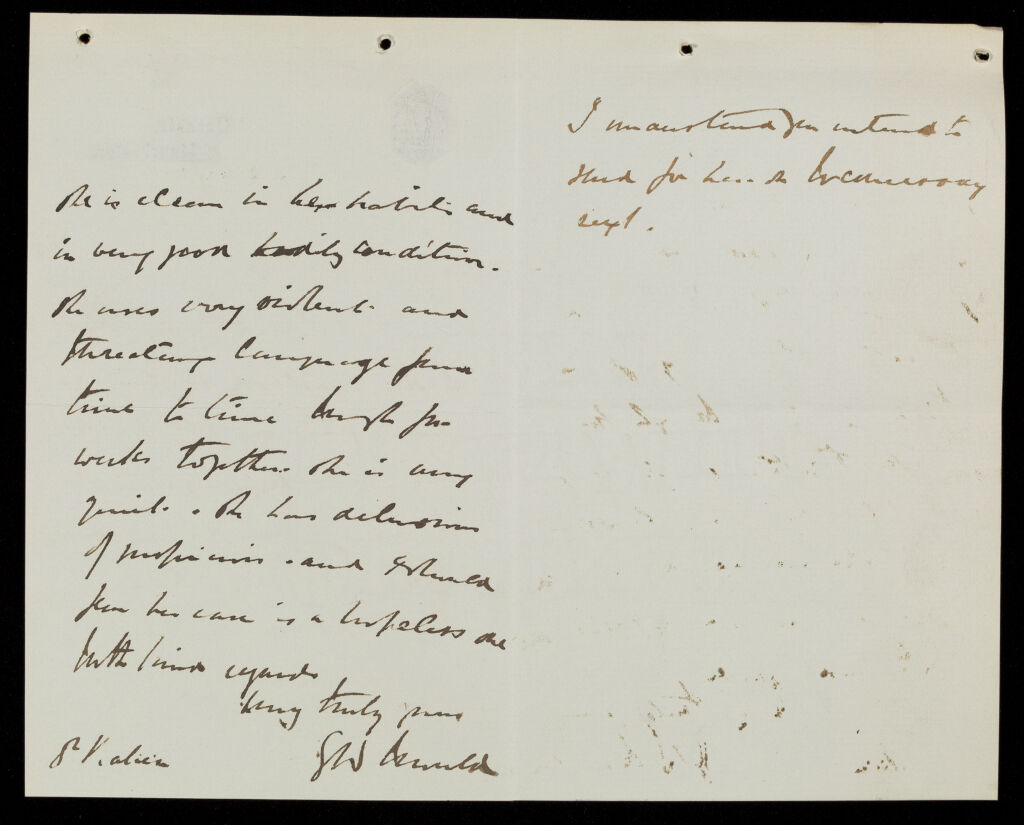 She is clean in her habits and
in very good bodily condition.
She uses very violent and
threating language from
time to time though for
weeks together she is very
quiet. She has delusions
of suspicion. and I should
fear her case is a hopeless one
With kind regards
Very truly yours
Dr
I understand you intend to
send for her on Wednesday
next.